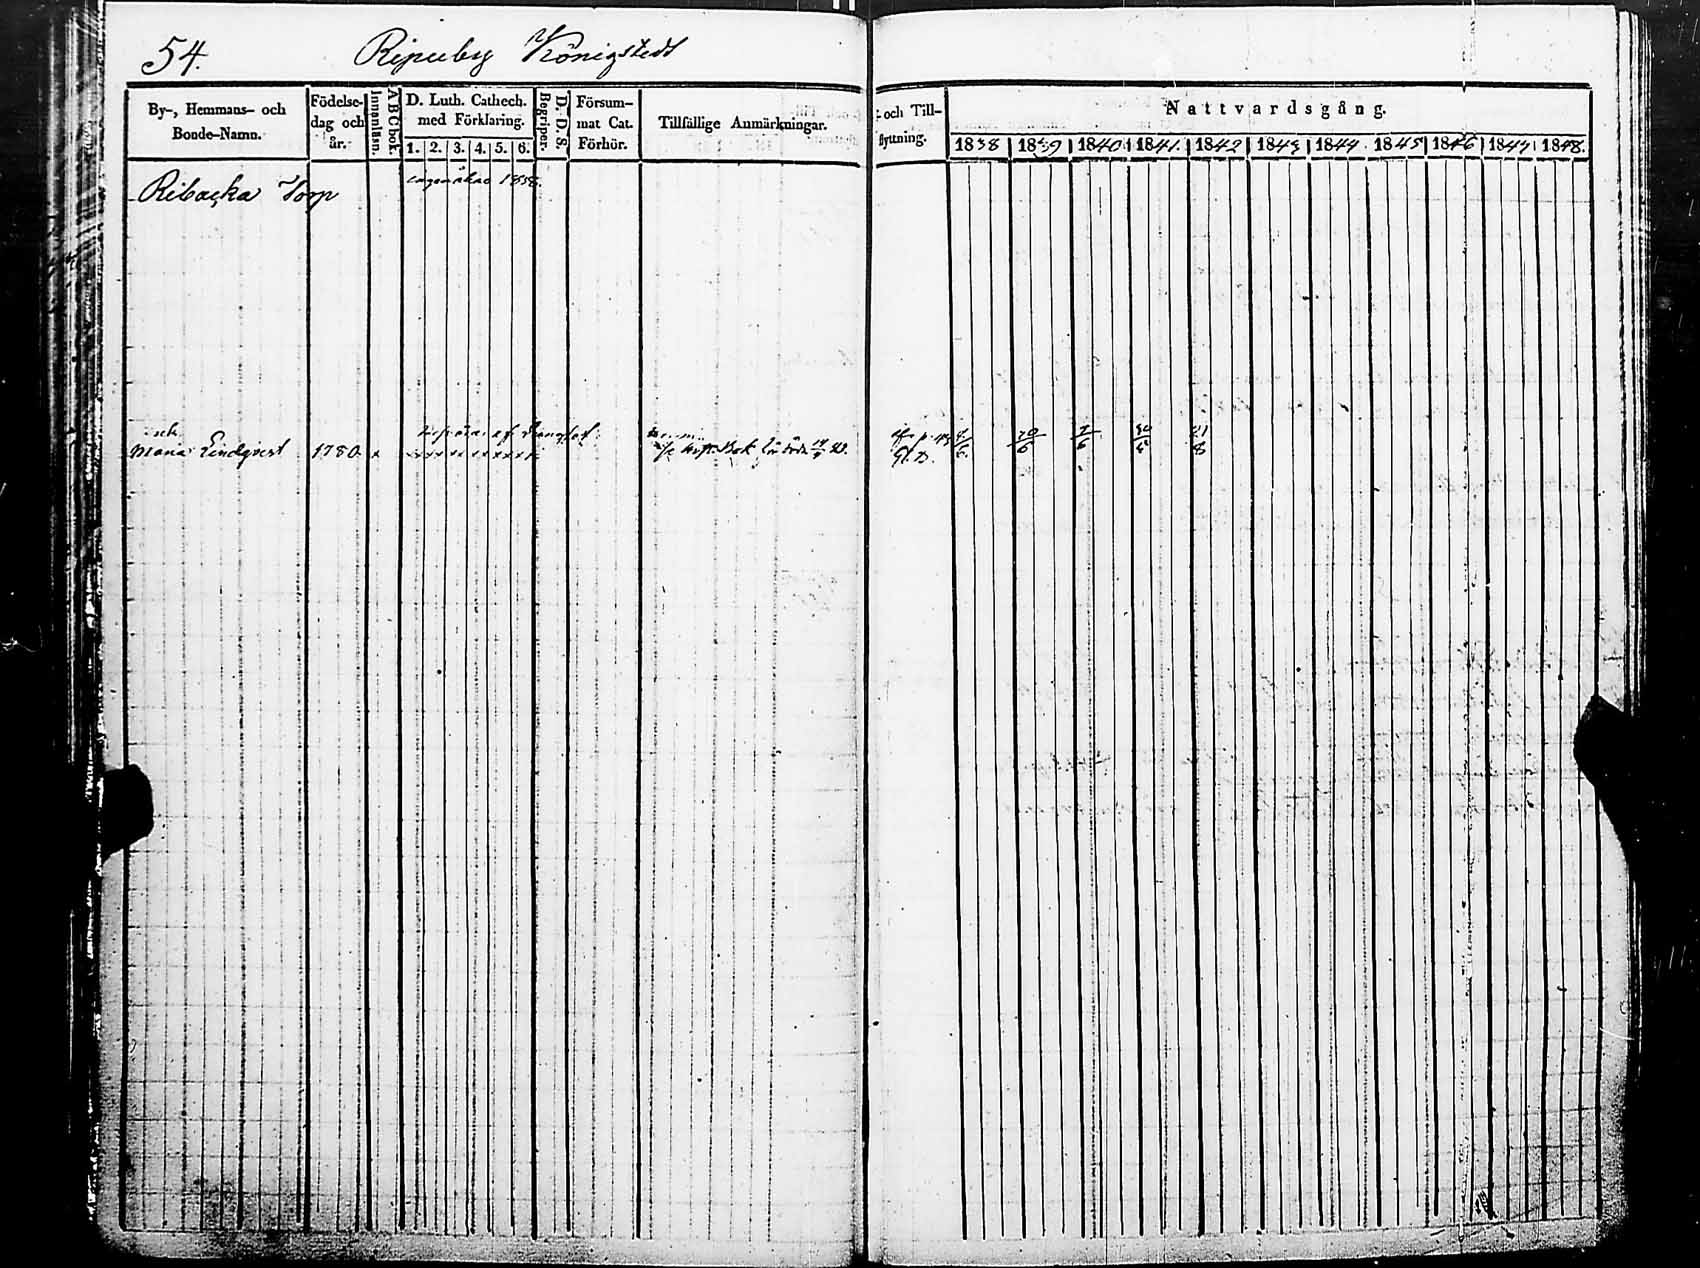 54.
Ripuby Königstedt
By-, Hemmans- och
Bonde-Namn.
Födelse-
dag och
år.
Innanläsn.
A B C bok.
D. Luth. Cathech.
med Förklaring.
1. 2. 3. 4. 5. 6.
Begriper.
D. D. S.
Försum-
mat Cat.
Förhör.
Tillfällige Anmärkningar.
och Till-
flyttning.
Nattvardsgång.
1838 1839 1840 1841. 1842 1843 1844 1845 1846 1847 1848.
Ribacka Torp
1838.
Maria Lindqvist 1780 x
Bok
p. 43
Gl. B.
20/6 7/6